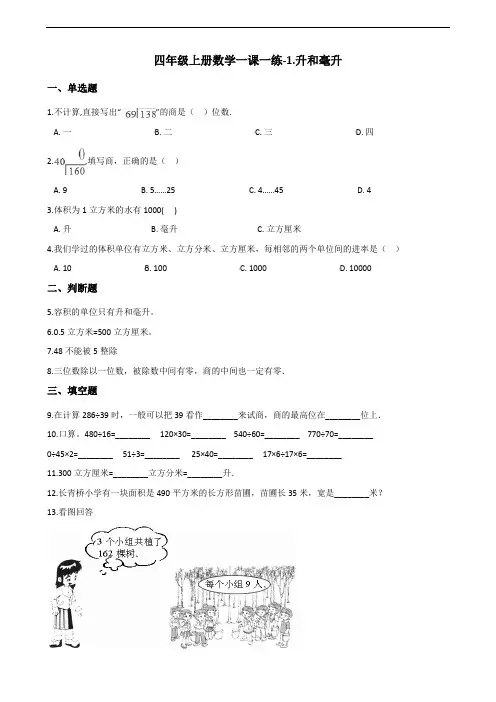 四年级上册数学一课一练-1.升和毫升
一、单选题
1.不计算,直接写出“ 69 138 ”的商是（ ）位数.
A. 一 B. 二 C. 三 D. 四
2. 40 160 () 填写商，正确的是（ ）
A. 9 B. 5……25 C. 4……45 D. 4
3.体积为1立方米的水有1000( )
A. 升 B. 毫升 C. 立方厘米
4.我们学过的体积单位有立方米、立方分米、立方厘米，每相邻的两个单位间的进率是（ ）
A. 10 B. 100 C. 1000 D. 10000
二、判断题
5.容积的单位只有升和毫升。
6.0.5立方米=500立方厘米。
7.48不能被5整除
8.三位数除以一位数，被除数中间有零，商的中间也一定有零．
三、填空题
9.在计算286÷39时，一般可以把39看作________来试商，商的最高位在________位上．
10.口算。480÷16=________ 120×30=________ 540÷60=________ 770÷70=________
0÷45×2=________ 51÷3=________ 25×40=________ 17×6÷17×6=________
11.300立方厘米=________立方分米=________升．
12.长青桥小学有一块面积是490平方米的长方形苗圃，苗圃长35米，宽是________米？
13.看图回答
3个小组共植了
162棵树.
每个小组9人.